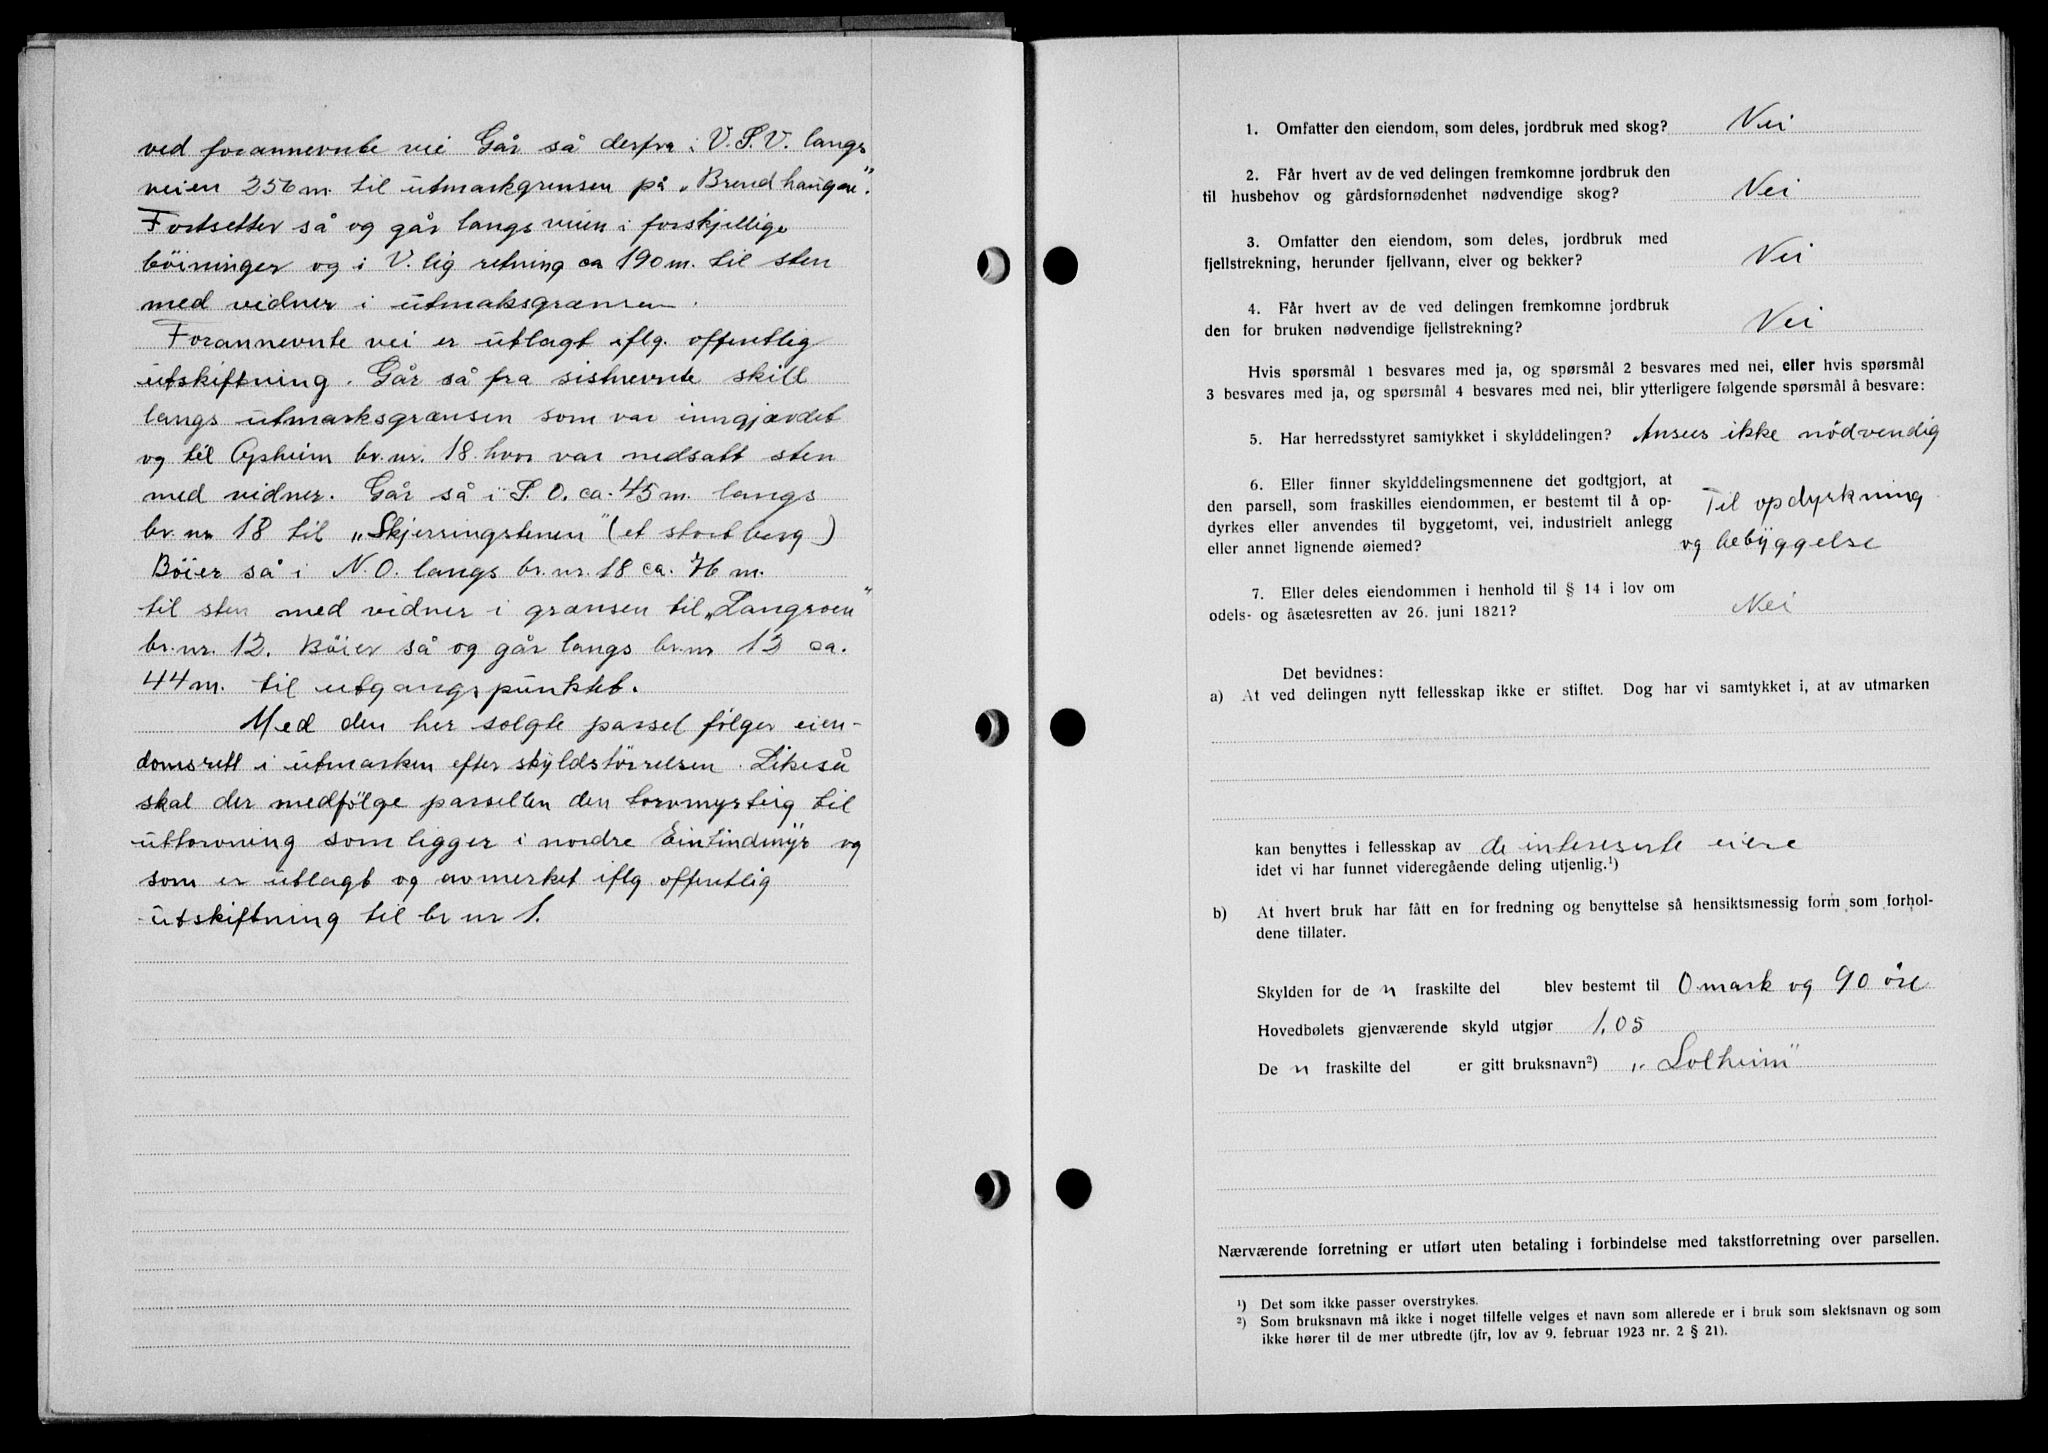 ved forannevnte vei Går så derfra i V.S.V. langs
veien 256 m. til utmarkgrensen på „Brendhaugen".
Fortsetter så og går langs veien i forskjellige
böininger og i V.lig retning ca 190 m. til sten
med vidner i utmaksgrænsen.
Forannevnte vei er utlagt iflg. offentlig
utskiftning. Går så fra sistnevnte skill
langs utmarksgrænsen som var inngjærdet
og til Opheim br.nr. 18 hvor var nedsatt sten
med vidner. Går så i S.O. ca. 45 m. langs
br.nr 18 til „Skjerringstenen" (et stort berg)
Böier så i N.O. langs br.nr. 18 ca. 76 m.
til sten med vidner i grænsen til „Langroen"
br.nr. 12. Böier så og går langs br.nr 12 ca.
44 m. til utgangspunktet.
Med den her solgte parsel følger eien-
domsrett i utmarken efter skyldstörrelsen. Likeså
skal der medfölge parsellen den torvmyrteig til
uttorvning som ligger i nordre Eintindmyr og
som er utlagt og avmerket iflg. offentlig
utskiftning til br nr 1.
1. Omfatter den eiendom, som deles, jordbruk med skog? Nei
2. Får hvert av de ved delingen fremkomne jordbruk den
til husbehov og gårdsfornødenhet nødvendige skog? Nei
3. Omfatter den eiendom, som deles, jordbruk med
fjellstrekning, herunder fjellvann, elver og bekker? Nei
4. Får hvert av de ved delingen fremkomne jordbruk
den for bruken nødvendige fjellstrekning? Nei
Hvis spørsmål 1 besvares med ja, og spørsmål 2 besvares med nei, eller hvis spørsmål
3 besvares med ja, og spørsmål 4 besvares med nei, blir ytterligere følgende spørsmål å besvare:
5. Har herredsstyret samtykket i skylddelingen? Ansees ikke nödvendig
6. Eller finner skylddelingsmennene det godtgjort, at
den parsell, som fraskilles eiendommen, er bestemt til å op-
dyrkes eller anvendes til byggetomt, vei, industrielt anlegg
eller annet lignende øiemed?
Til opdyrkning
og bebyggelse
7. Eller deles eiendommen i henhold til § 14 i lov om
odels- og åsætesretten av 26. juni 1821? Nei
Det bevidnes:
a) At ved delingen nytt fellesskap ikke er stiftet. Dog har vi samtykket i, at av utmarken
kan benyttes i fellesskap av de interesserte eiere
idet vi har funnet videregående deling utjenlig.¹)
b) At hvert bruk har fått en for fredning og benyttelse så hensiktsmessig form som forhol-
dene tillater.
Skylden for de n fraskilte del blev bestemt til 0 mark og 90 öre
Hovedbølets gjenværende skyld utgjør 1,05
De n fraskilte del er gitt bruksnavn²) „Solheim"
Nærværende forretning er utført uten betaling i forbindelse med takstforretning over parsellen.
¹) Det som ikke passer overstrykes.
²) Som bruksnavn må ikke i noget tilfelle velges et navn som allerede er i bruk som slektsnavn og som
ikke hører til de mer utbredte (jfr, lov av 9. februar 1923 nr. 2 § 21).